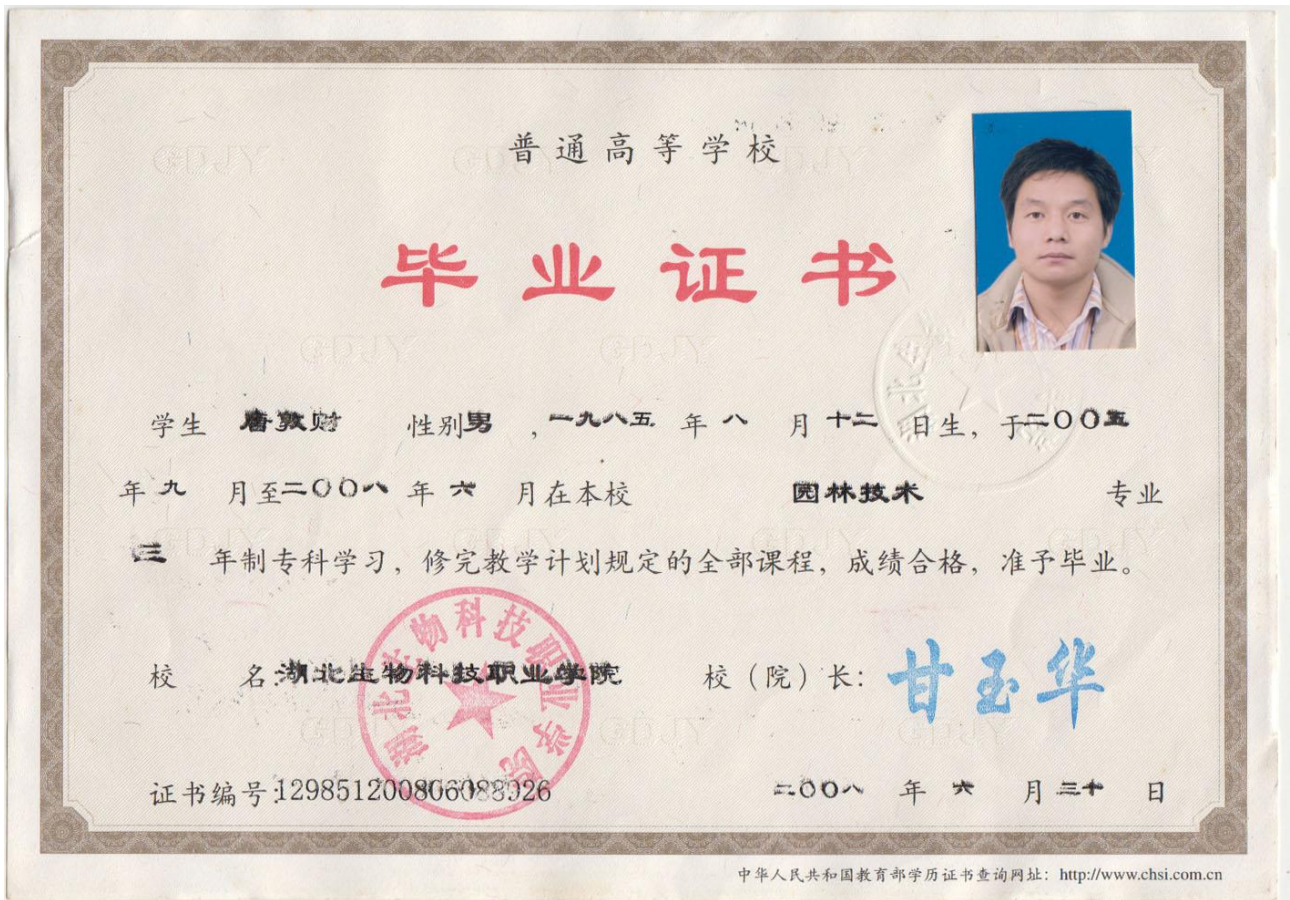 普通高等学校
毕业证书
学生 唐敦财 性别男 ,一九八五 年 八 月 十二 日生，于二〇〇五
年 九 月至二〇〇八 年 六 月在本校 园林技术 专业
三 年制专科学习，修完教学计划规定的全部课程，成绩合格，准予毕业。
校 名:湖北生物科技职业学院 校（院）长：甘玉华
湖北生物科技职业学院
证书编号:129851200806088926 二〇〇八 年 六 月 三十 日
中华人民共和国教育部学历证书查询网址：http://www.chsi.com.cn